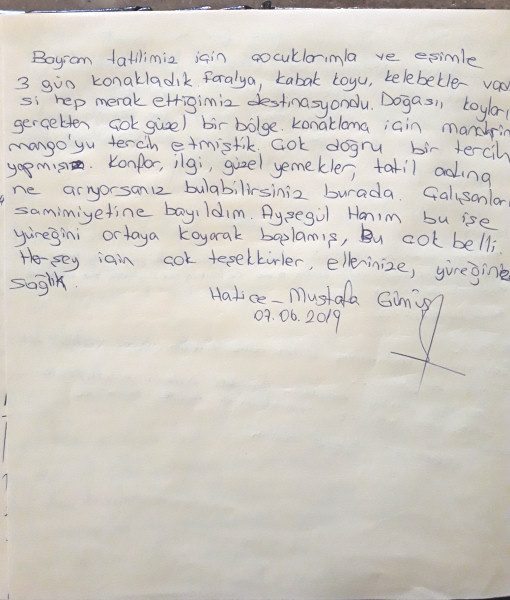 Bayram tatilimiz için çocuklarımla ve eşimle
3 gün konakladık. Faralya, kabak koyu, kelebekler vadi
si hep merak ettiğimiz destinasyondu. Doğası, koyları
gerçekten çok güzel bir bölge. Konaklama için mandrin
mango'yu tercih etmiştik. Çok doğru bir tercih
yapmışız. Konfor, ilgi, güzel yemekler, tatil adına
ne arıyorsanız bulabilirsiniz burada. Çalışanları
samimiyetine bayıldım. Ayşegül Hanım bu işe
yüreğini ortaya koyarak başlamış, Bu çok belli.
Herşey için çok teşekkürler, ellerinize, yüreğinize
sağlık.
Hatice - Mustafa Gümüş
07.06.2019